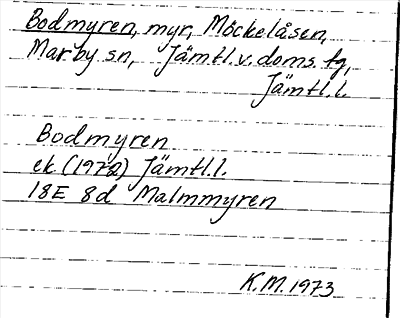 Bodmyren, myr, Möckelåsen,
Marby sn, Jämtl.v. doms. tg,
Jämtl.l.
Bodmyren
ek (1972) Jämtl.l.
18E 8d Malmmyren
K.M. 1973